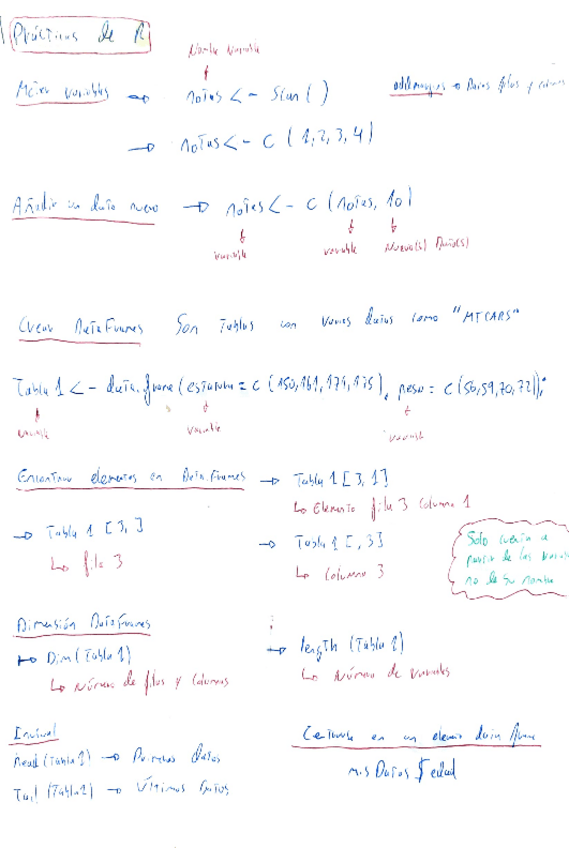 Prácticas de R
Nombre Variable
Meter variables → notas <- Scan ( )
addmargins → Datos filas y colum
→ notas <- C (1,2,3,4)
Añadir un dato nuevo → notas <- C (notas, 10)
variable variable Nuevo(s) Dato(s)
Crear DataFrames Son Tablas con varios datos como "MTCARS"
Tabla 1 <- data.frame (estatura = C (150,161,171,175), peso = C (50,59,70,72));
variable variable variable
Encontrar elementos en Data.Frames → Tabla 1 [3,1]
↳ Elemento fila 3 Columna 1
→ Tabla 1 [3,]
↳ fila 3
→ Tabla 1 [,3]
↳ Columna 3
Solo cuenta a
partir de las
no de su nombre
Dimensión DataFrames
→ Dim (Tabla 1)
↳ Número de filas y Columnas
→ length (Tabla 1)
↳ Número de variables
Head (Tabla 1) → Primeros datos
Tail (Tabla 1) → Últimos datos
Centrarse en un elemento data frame
mis Datos $ edad